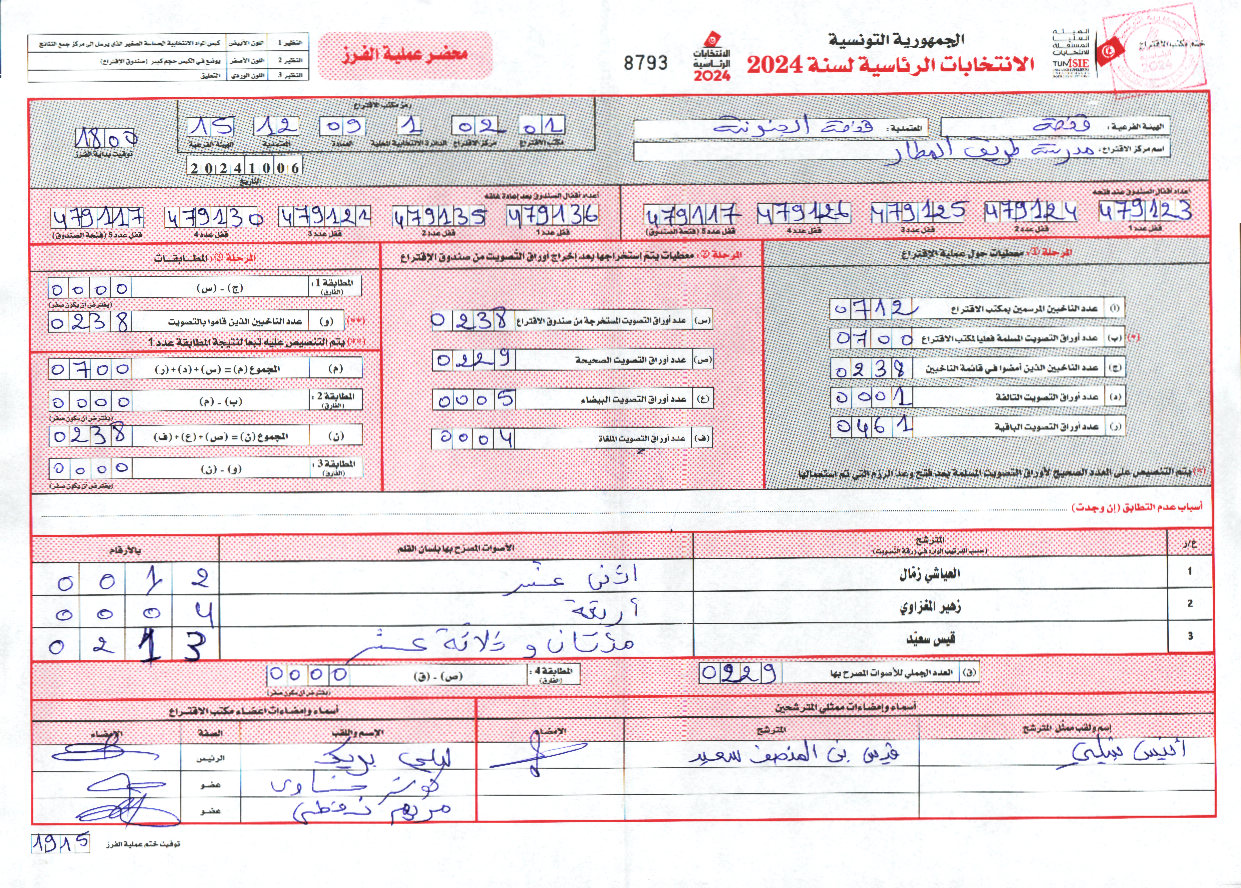 الجمهورية التونسية
الانتخابات الرئاسية لسنة 2024
الهيئة العليا المستقلة للانتخابات
TUNISIE
ختم مكتب الاقتراع
الانتخابات الرئاسية 2024
8793
محضر عملية الفرز
النظير 1 اللون الأبيض كيس المواد الانتخابية الحساسة الصغير الذي يرسل الى مركز جمع النتائج
النظير 2 اللون الأصفر يوضع في الكيس حجم كبير (صندوق الاقتراع)
النظير 3 اللون الوردي التعليق
الهيئة الفرعية: قفصة
المعتمدية: قفصة الجنوبية
اسم مركز الاقتراع: مدرسة طريق المطار
رمز مكتب الاقتراع
01 02 1 09 12 15
مكتب الاقتراع مركز الاقتراع الدائرة الانتخابية المحلية العمادة المعتمدية الهيئة الفرعية
1800
توقيت بداية الفرز
20241006
التاريخ
أعداد أقفال الصندوق عند فتحه
479123 479124 479125 479126 479117
قفل عدد 1 قفل عدد 2 قفل عدد 3 قفل عدد 4 قفل عدد 5 (فتحة الصندوق)
أعداد أقفال الصندوق بعد إعادة غلقه
479136 479135 479121 479130 479117
قفل عدد 1 قفل عدد 2 قفل عدد 3 قفل عدد 4 قفل عدد 5 (فتحة الصندوق)
المرحلة ①: معطيات حول عملية الاقتراع
(أ) عدد الناخبين المرسمين بمكتب الاقتراع 0712
(*) (ب) عدد أوراق التصويت المسلمة فعليا لمكتب الاقتراع 0700
(ج) عدد الناخبين الذين أمضوا في قائمة الناخبين 0238
(د) عدد أوراق التصويت التالفة 0001
(ر) عدد أوراق التصويت الباقية 0461
(*) يتم التنصيص على العدد الصحيح لأوراق التصويت المسلمة بعد فتح وعد الرزم التي تم استعمالها
المرحلة ②: معطيات يتم إستخراجها بعد إخراج أوراق التصويت من صندوق الاقتراع
(س) عدد أوراق التصويت المستخرجة من صندوق الاقتراع 0238
(ص) عدد أوراق التصويت الصحيحة 0229
(ع) عدد أوراق التصويت البيضاء 0005
(ف) عدد أوراق التصويت الملغاة 0004
المرحلة ③: المطابقات
المطابقة 1: (الفارق) (ج) - (س) 0000
(يفترض أن يكون صفر)
(**) (و) عدد الناخبين الذين قاموا بالتصويت 0238
(**) يتم التنصيص عليه تبعا لنتيجة المطابقة عدد 1
(م) المجموع (م) = (س)+(د)+(ر) 0700
المطابقة 2: (الفارق) (ب) - (م) 0000
(يفترض أن يكون صفر)
(ن) المجموع (ن) = (ص)+(ع)+(ف) 0238
المطابقة 3: (الفارق) (و) - (ن) 0000
(يفترض أن يكون صفر)
أسباب عدم التطابق (إن وجدت)
ع/ر المترشح (حسب الترتيب الوارد في ورقة التصويت) الأصوات المصرح بها بلسان القلم بالأرقام
1 العياشي زمّال اثنى عشر 0012
2 زهير المغزاوي أربعة 0004
3 قيس سعيّد مئتان و ثلاثة عشر 0213
(ق) العدد الجملي للأصوات المصرح بها 0229
المطابقة 4: (الفارق) (ص) - (ق) 0000
(يفترض أن يكون صفر)
أسماء وإمضاءات ممثلي المترشحين
إسم ولقب ممثل المترشح المترشح الإمضاء
قيس بن المنصف سعيد
أسماء وإمضاءات أعضاء مكتب الاقتراع
الاسم واللقب الصفة الإمضاء
ليلى بريك الرئيس
عضو
مريم عضو
توقيت ختم عملية الفرز 1915